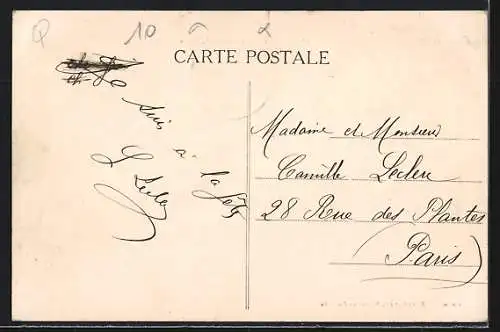 10
CARTE POSTALE
Je suis à la fête
Madame et Monsieur
Camille Leclerc
28 Rue des Plantes
Paris